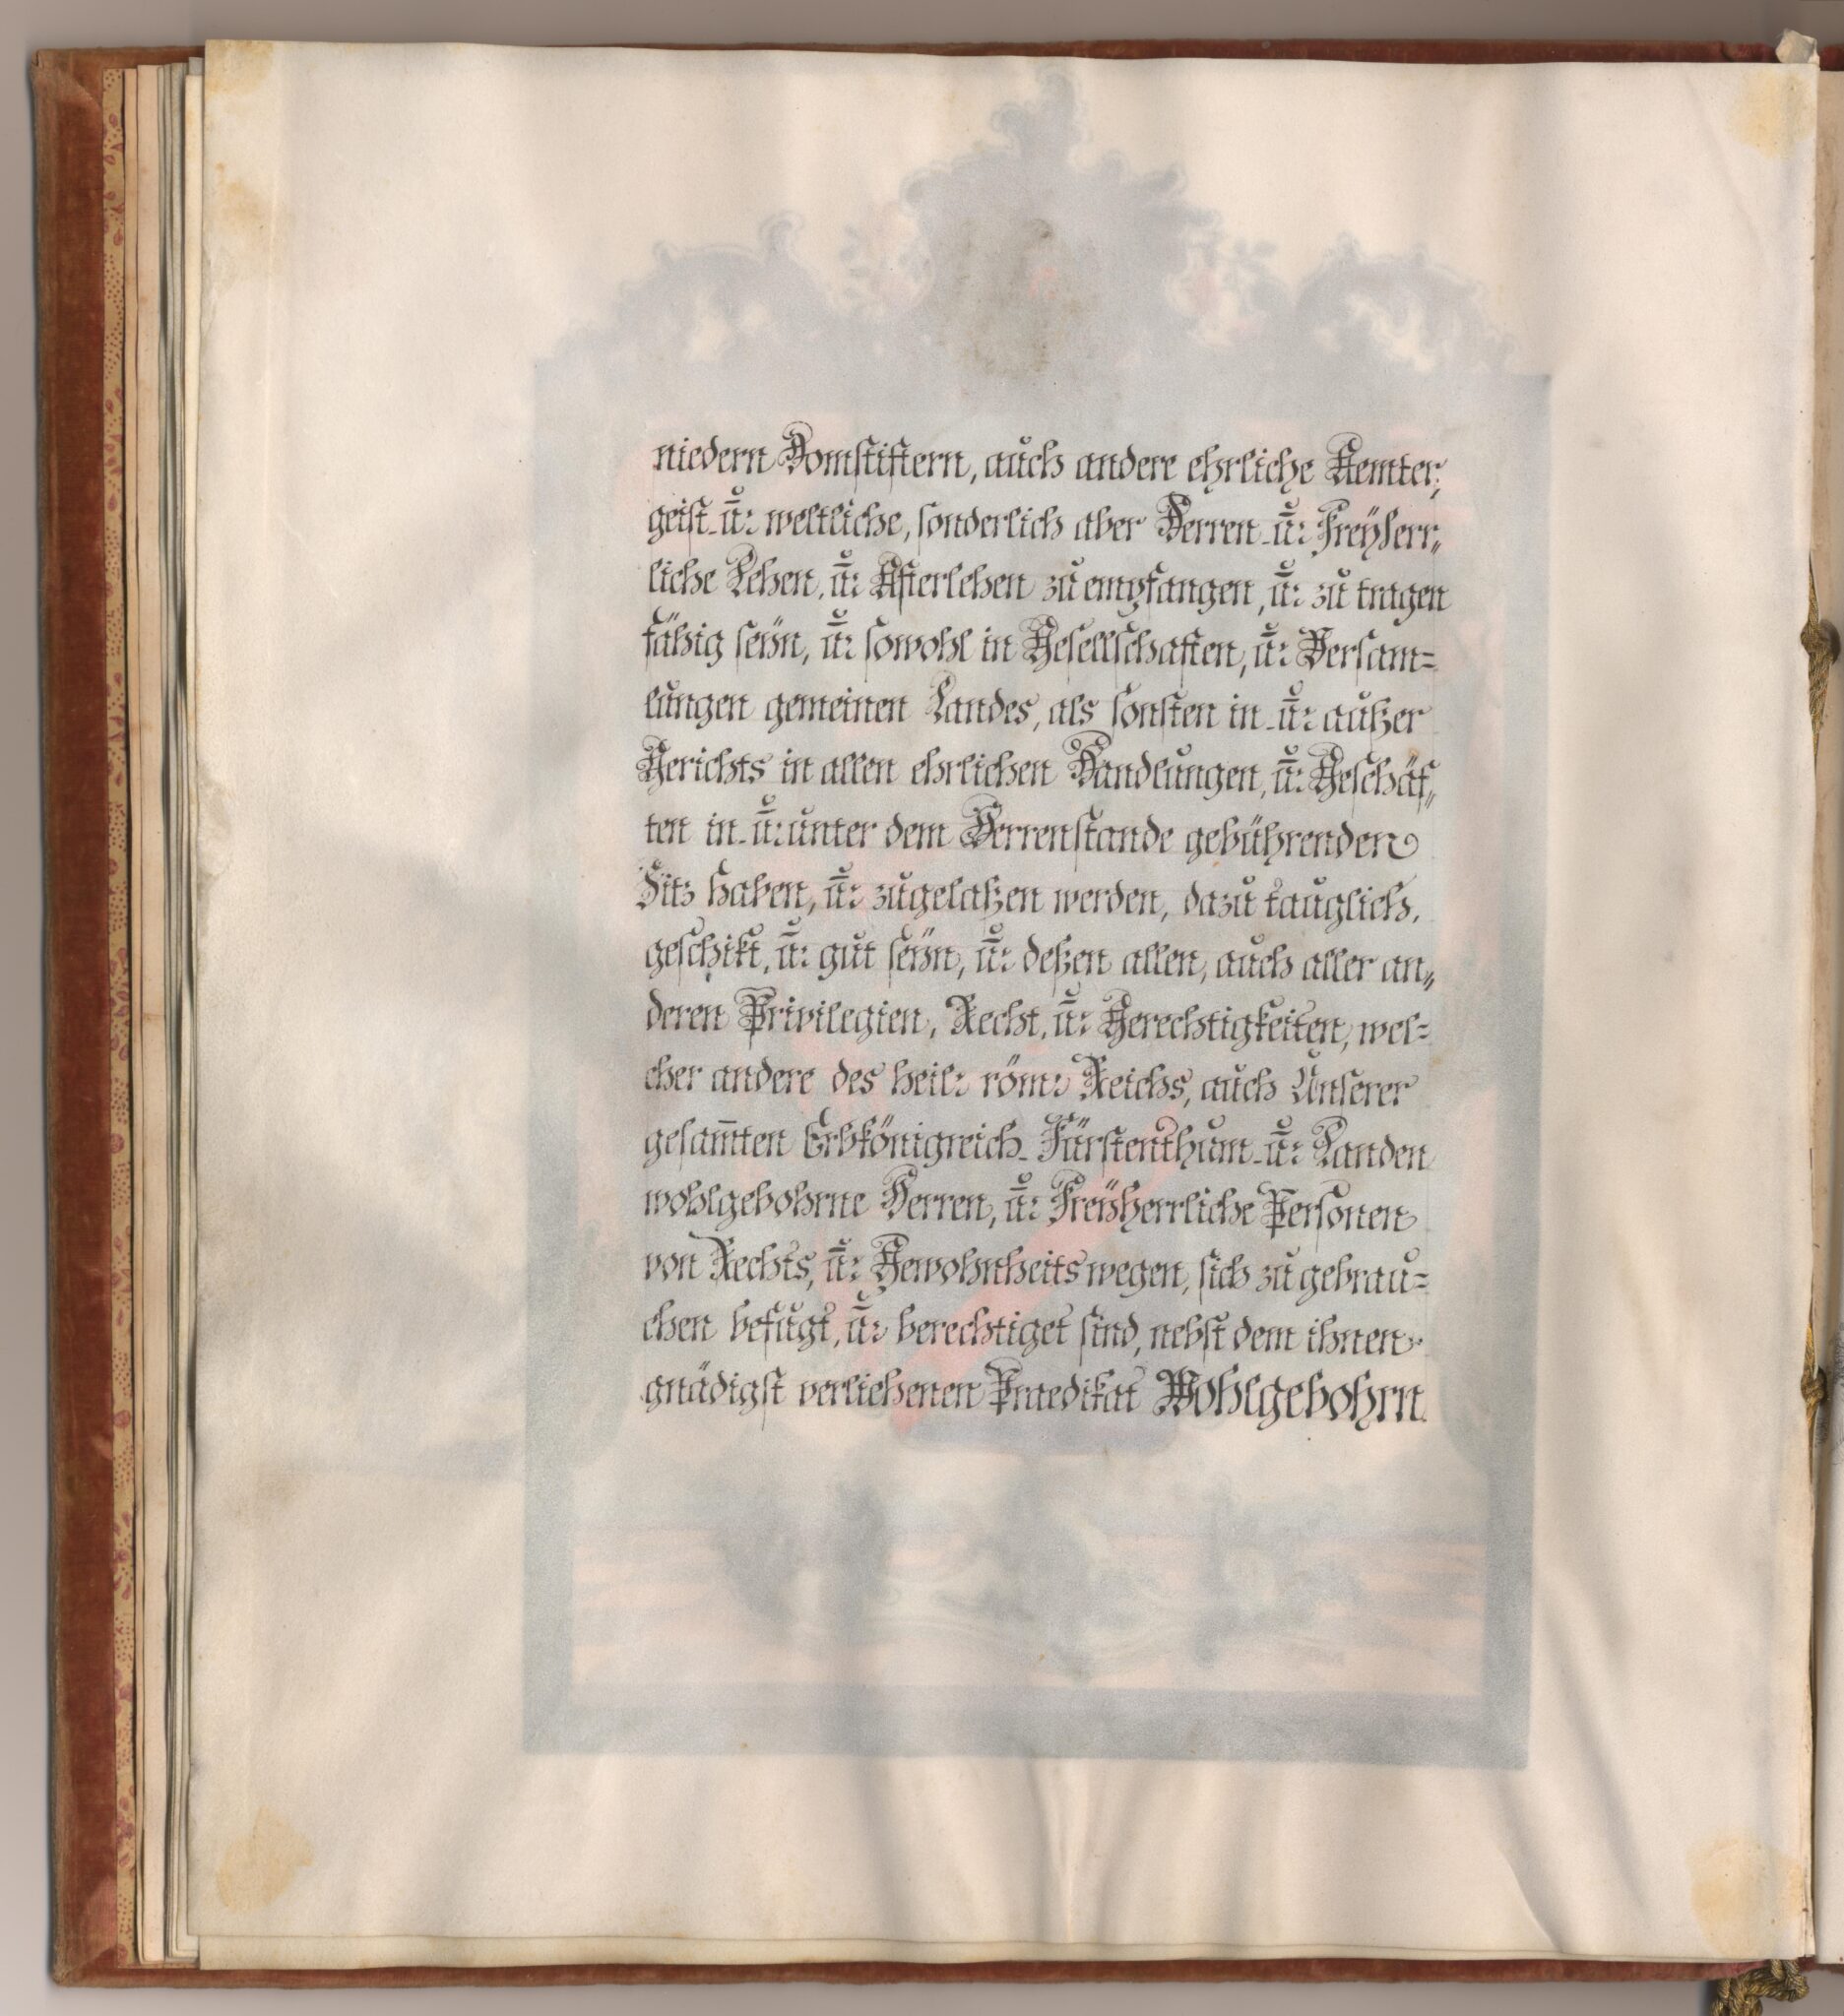 niedern Domstiftern, auch andere ehrliche Aemter,
geist- u: weltliche, sonderlich aber Herren- u: Freÿherr„
liche Lehen, u: Afterlehen zu empfangen, u: zu tragen
fähig seÿn, u: sowohl in Gesellschaften, u: Versam=
lungen gemeinen Landes, als sonsten in- u: außer
Gerichts in allen ehrlichen Handlungen, u: Geschäf„
ten in- u: unter dem Herrenstande gebührenden
Sitz haben, u: zugelaßen werden, dazu tauglich,
geschikt, u: gut seÿn, u: deßen allen, auch aller an„
deren Privilegien, Recht, u: Gerechtigkeiten, wel=
cher andere des heil: röm: Reichs, auch Unserer
gesam̅ten Erbkönigreich- Fürstenthum- u: Landen
wohlgebohrne Herren, u: Freÿherrliche Personen
von Rechts, u: Gewohnheits wegen, sich zu gebrau=
chen befugt, u: berechtiget sind, nebst dem ihnen
gnädigst verliehenen Praedikat Wohlgebohrn.